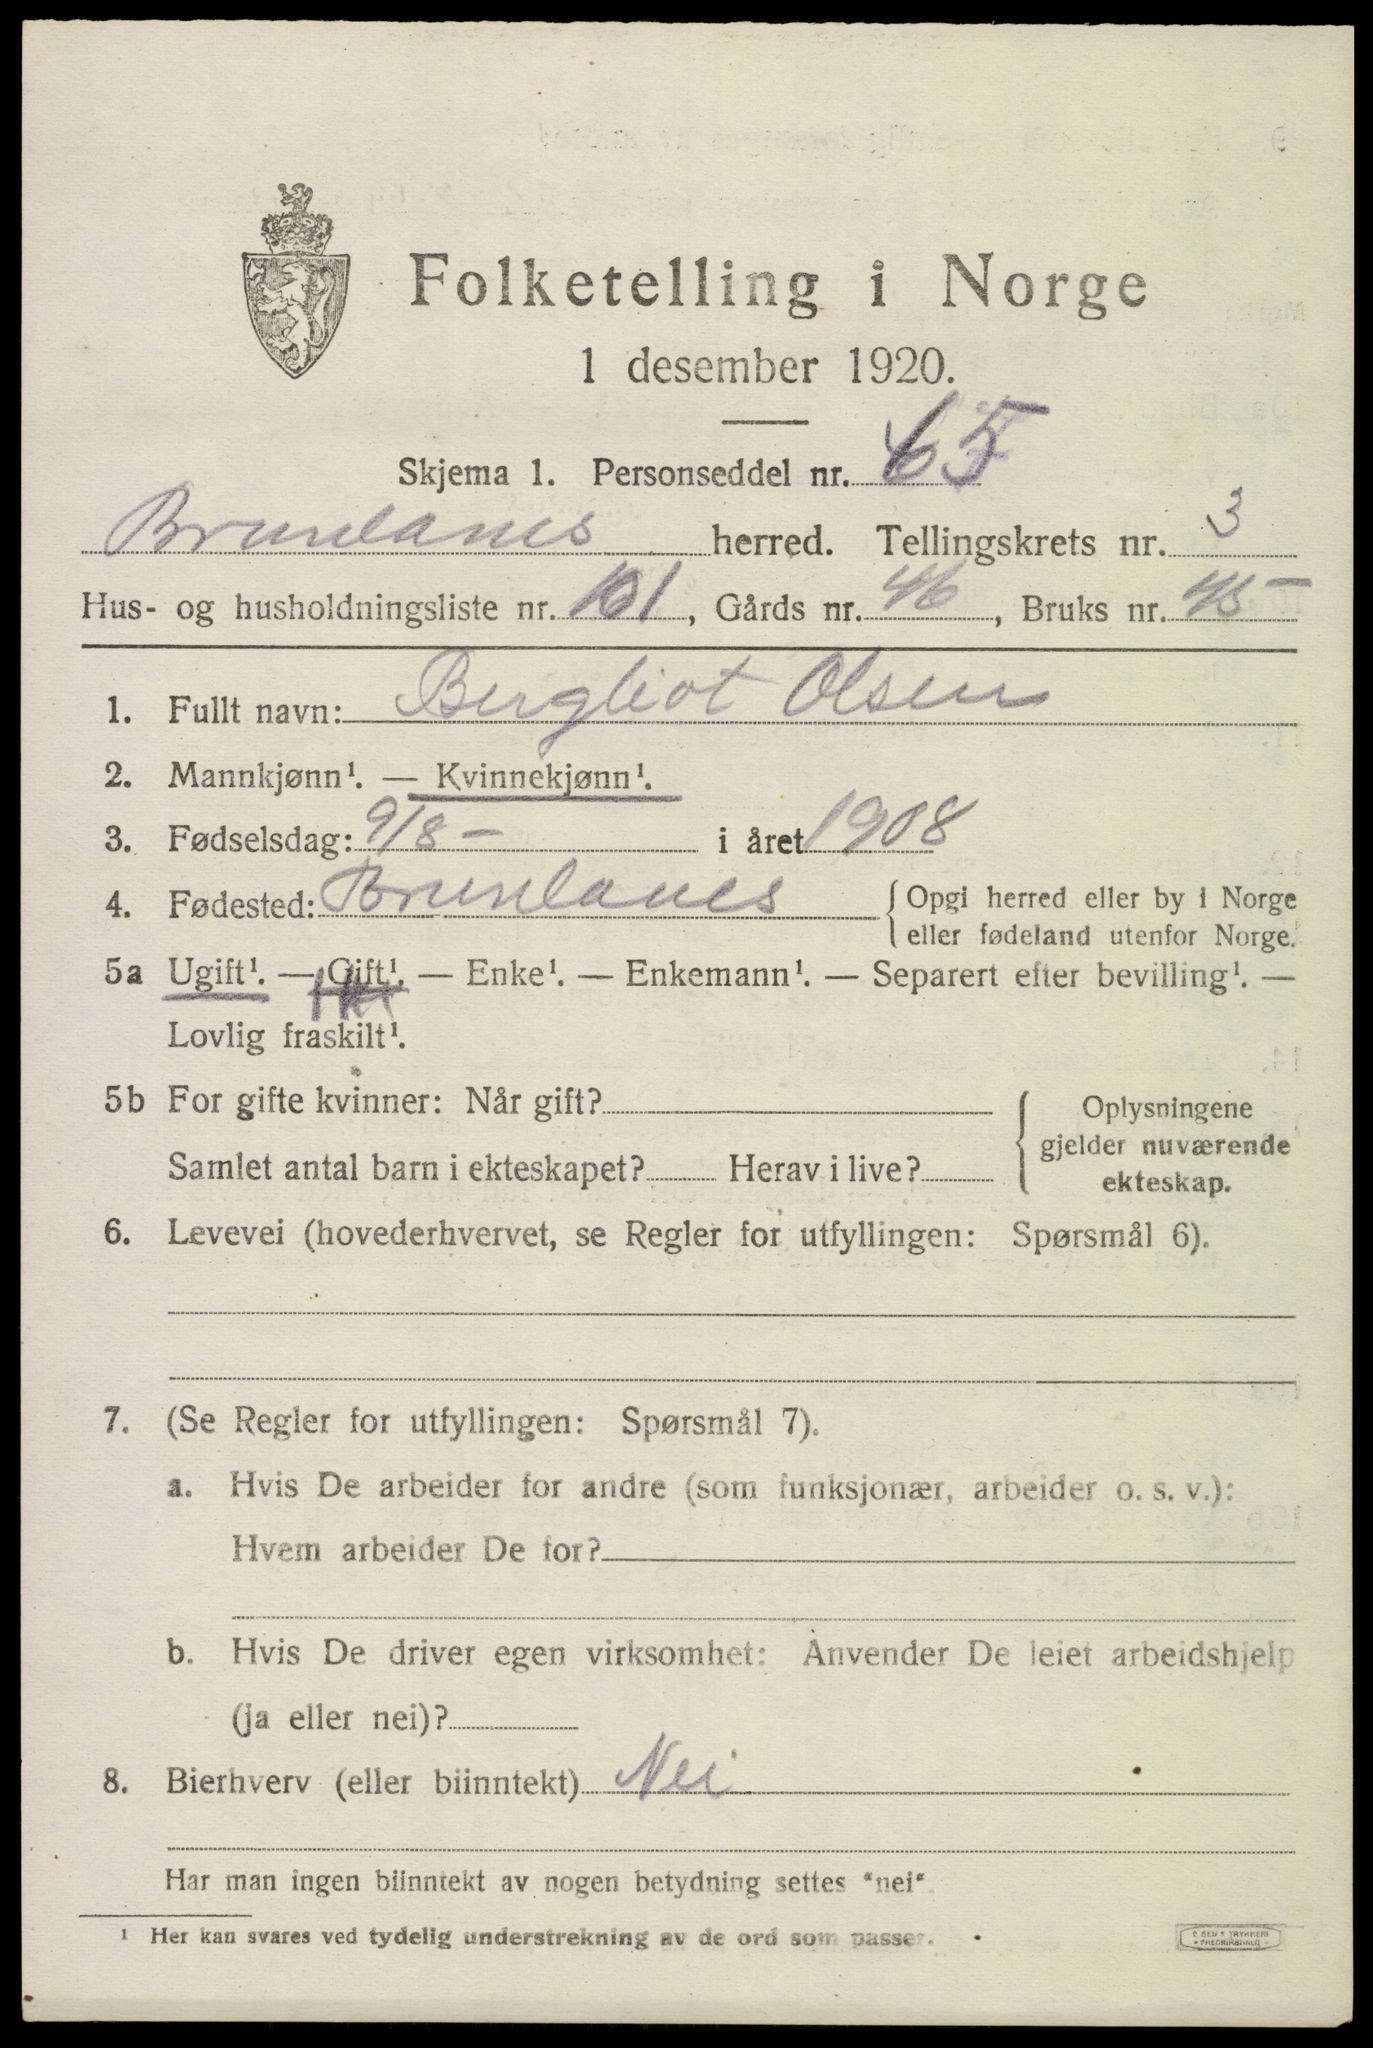 Folketelling i Norge
1 desember 1920.
Skjema 1. Personseddel nr. 65
Brunlanes herred. Tellingskrets nr. 3
Hus- og husholdningsliste nr. 101, Gårds nr. 46, Bruks nr. 45
1. Fullt navn: Bergliot Olsen
2. Mannkjønn¹. — Kvinnekjønn¹.
3. Fødselsdag: 9/8 - i året 1908
4. Fødested: Brunlanes {Opgi herred eller by i Norge
eller fødeland utenfor Norge.
5a Ugift¹. — Gift¹. — Enke¹. — Enkemann¹. — Separert efter bevilling¹. —
Lovlig fraskilt¹.
5b For gifte kvinner: Når gift? { Oplysningene
gjelder nuværende
Samlet antal barn i ekteskapet? Herav i live?
ekteskap.
6. Levevei (hovederhvervet, se Regler for utfyllingen: Spørsmål 6).
7. (Se Regler for utfyllingen: Spørsmål 7).
a. Hvis De arbeider for andre (som funksjonær, arbeider o. s. v.):
Hvem arbeider De for?
b. Hvis De driver egen virksomhet: Anvender De leiet arbeidshjelp
(ja eller nei)?
8. Bierhverv (eller biinntekt) Nei
Har man ingen biinntekt av nogen betydning settes "nei".
¹ Her kan svares ved tydelig understrekning av de ord som passer.